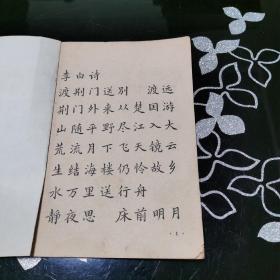 李白诗
渡荆门送别 渡远
荆门外来从楚国游
山随平野尽江入大
荒流月下飞天镜云
生结海楼仍怜故乡
水万里送行舟
静夜思 床前明月
·1·